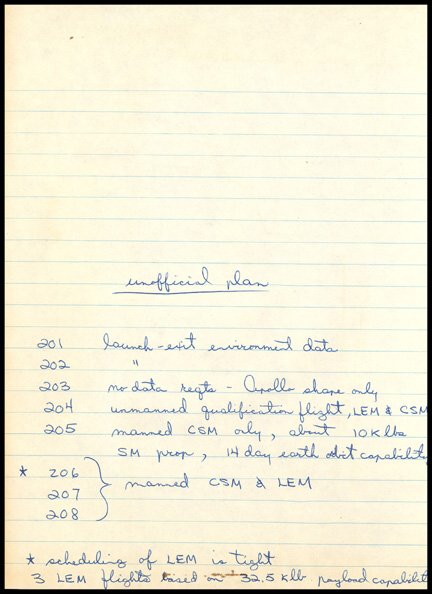 unofficial plan
201 launch-exit environment data
202 "
203 no data reqts - Apollo shape only
204 unmanned qualification flight, LEM & CSM
205 manned CSM only, about 10K lbs
SM prop, 14 day earth orbit capability
* 206
207 manned CSM & LEM
208
* scheduling of LEM is tight
3 LEM flights based on 32.5 K lb payload capabilit